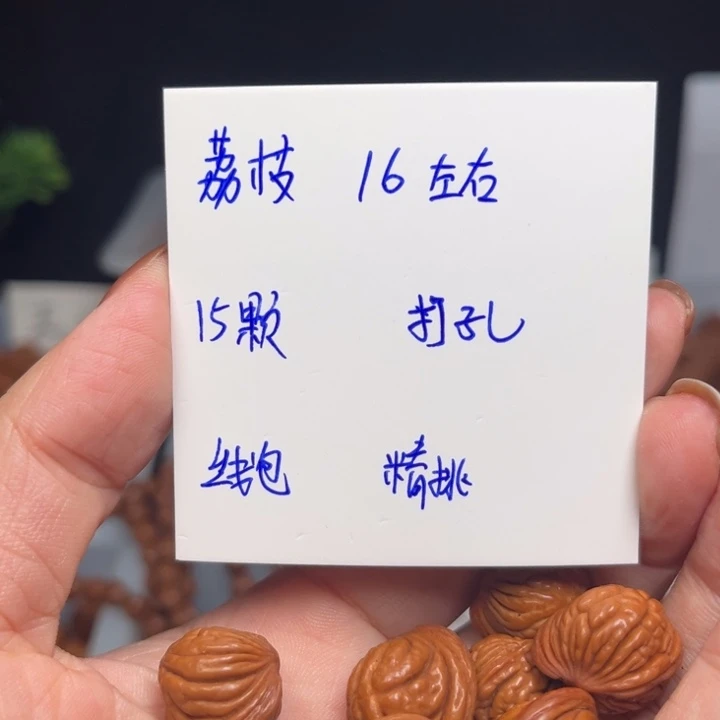 荔枝 16左右
15颗 打孔
线包 精挑